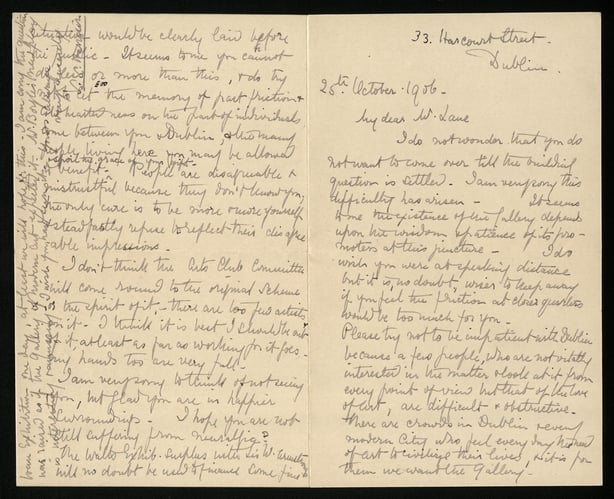 33. Harcourt Street.
Dublin.
25th October. 1906.
My dear Mr. Lane
I do not wonder that you do
not want to come over till the building
question is settled. I am very sorry this
difficulty has arisen. It seems
to me the existence of the Gallery depends
upon the wisdom & patience of its pro-
moters at this juncture. I do
wish you were at speaking distance
but it is, no doubt, wiser to keep away
if you feel the friction at close quarters
would be too much for you.
Please try not to be impatient with Dublin
because a few people, who are not vitally
interested in the matter & look at it from
every point of view but that of the love
of art, are difficult & obstructive.
There are crowds in Dublin & every
modern City who feel every day the need
of art to civilize their lives, & it is for
them we want the Gallery.
situation would be clearly laid before
the public. It seems to me you cannot
do less or more than this, & do try
to let the memory of past friction &
halfheartedness on the part of individuals
come between you & Dublin, & the many
people living here you may be allowed
to benefit. People are disagreeable &
mistrustful because they don't know you,
the only cure is to be more & more yourself
& steadfastly refuse to reflect their disagree
able impressions.
I don't think the Arts Club Committee
will come round to the original scheme
or the spirit of it, there are too few artists
on it. I think it is best I should be out
of it at least as far as working for it goes.
My hands too are very full.
I am very sorry to think of not seeing
you, but glad you are in happier
surroundings. I hope you are not
still suffering from neuralgia.
The Watts Exhib. surplus
will no doubt be used to finance some fine
loan Exhibition one day, at least we will hope
this. I am sorry the question
was raised as if the Gallery of Modern Art